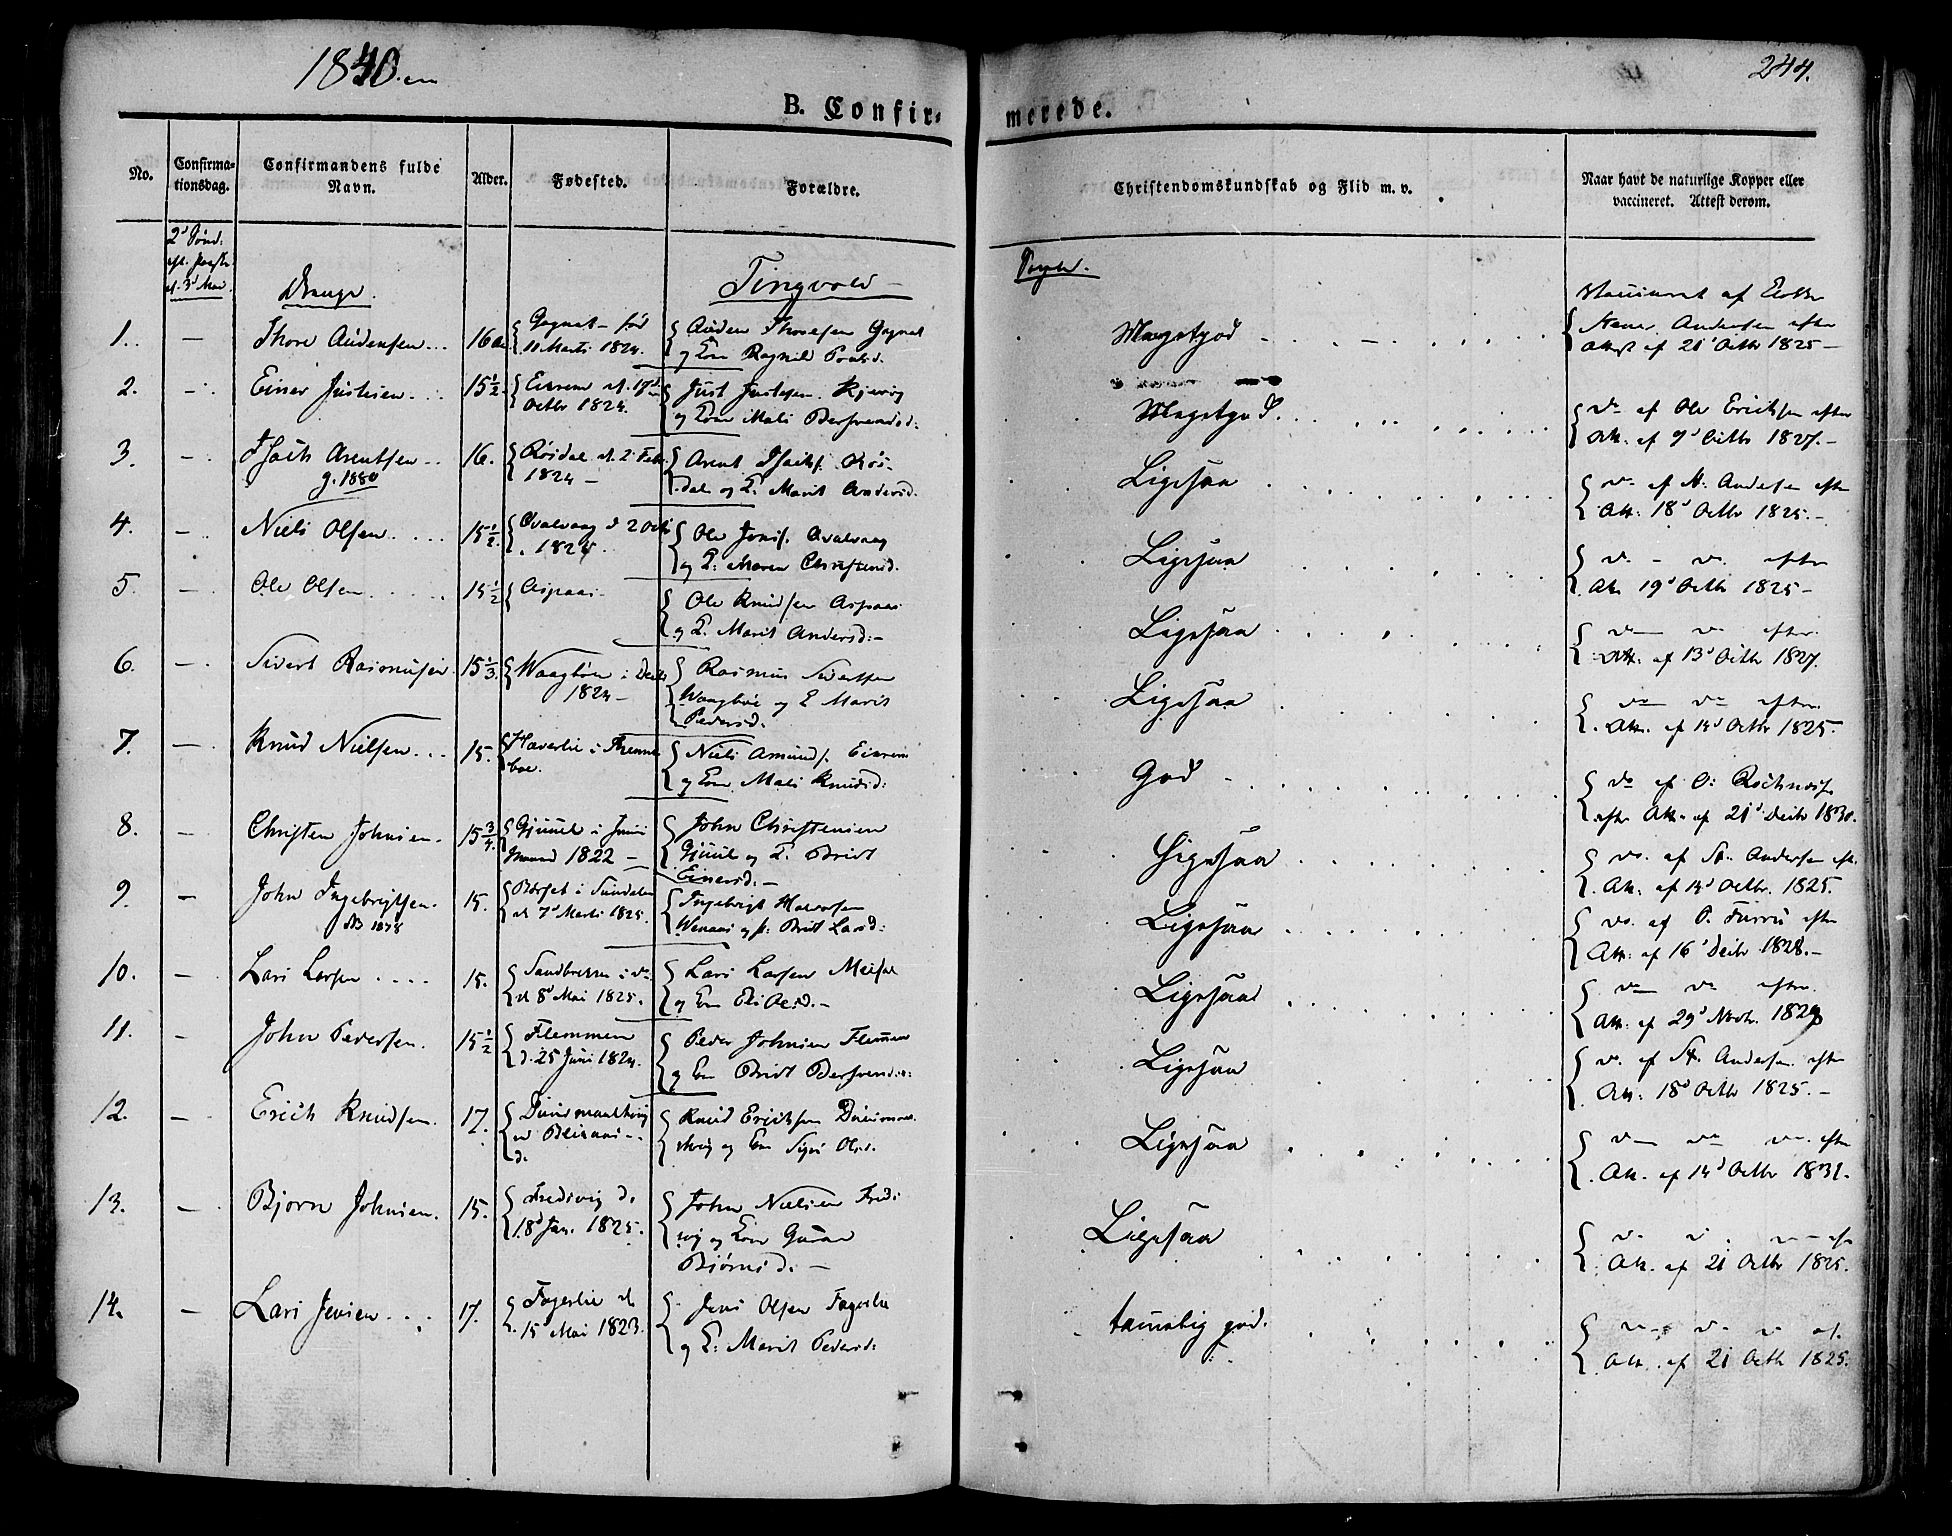 1840.
244.
B. Confirmerede.
No.
Confirmationsdag.
Confirmandens fulde Navn.
Alder.
Fødested.
Forældre.
Christendomskundskab og Flid m. v.
Naar havt de naturlige Kopper eller vaccineret. Attest derom.
2d Sønd:
eft. Paaske
d. 3d Mai.
Drenge.
Tingvold
1. — Thore Audensen
16
født
11 Marti 1824.
Auden Thoresen
og Kone Ragnild
Megetgod
Andersen efter
Attest af 21 Octbr 1825 —
2. — Einer Justesen
15 1/2
Eisrem d. 17d
Octbr 1824.
Just Justesen
og Kone Mali
Megetgod.
d° af Ole Ericksen efter
Att. af 9d Octbr 1827. —
3. — Isach Arentsen
g. 1880
16.
Røsdal d. 2d Febr.
1824 —
Arent Isachs. Røsdal
og K. Marit Andersd.
Ligesaa
d° af St. Andersen efter
Att: 18d Octbr 1825. —
4. — Niels Olsen
15 1/2
Qvalvaag d 2 Octbr
1824
Ole Jonss. Qvalvaag
og K: Maren Christensd.
Ligesaa
d° — d° efter
Att. 19d Octbr 1825 —
5. — Ole Olsen
15 1/2
Aspaas
Ole Knudsen Aspaas
og K. Marit Andersd: —
Ligesaa
d° d° efter
Att. af 13d Octbr 1827.
6. — Sivert Rasmusen
15 1/3
Waagbøe i
1824 —
Rasmus Sivertsen
Waagbøe og K Marit
Pedersd.
Ligesaa
d° d° efter
Att. af Octbr 1825.
7. — Knud Nielsen
15.
Haverlie i
Niels Amunds. Eisrem
og Kone Mali Knudsd:
God
d° af
efter Att. af 21d Decbr 1830.
8. — Christen Johnsen
15 3/4
Gjuul i Juni
Maaned 1822 —
John Christensen
Gjuul og K. Bridt
Einersd. —
Ligesaa
d° af St. Andersen eft.
Att: af Octbr. 1825.
9. — John Ingebrigtsen
1878
15.
i Sundalen
d 7d Marti 1825.
Ingebrigt Halvorsen
og K: Brit Larsd:
Ligesaa
d° af efter
Att: af 16d Decbr 1828. —
10. — Lars Larsen
15.
i d°
d 8d Mai 1825.
Lars Larsen Meisal
og Kone
Ligesaa
d° d° efter
Att. af 29d Novbr. 1829
11. — John Pedersen
15 1/2
Flemmen
d. 25 Juni 1824.
Peder Johnsen Flemmen
og Kone Bridt
Ligesaa
d° af St. Andersen efter
Att. 18d Octbr 1825. —
12. — Erich Knudsen
17.
Knud Ericksen
og Kone Olsd.
Ligesaa
d° d° d° efter
Att. af Octbr 1831.
13. — Bjørn Johnsen
15.
Fredsvig d.
18d Jan. 1825.
John Nielsen Fredsvig
og Kone Guran
Bjørnsd. —
Ligesaa
d° d° d°
Att. af 21 Octbr 1825.
14. — Lars Jensen
17.
Fagerlie d
15 Mai 1823.
Jens Olsen Fagerlie
og K: Marit Pedersd:
temmelig god.
d° d° d°
Att. af 21 Octbr 1825.